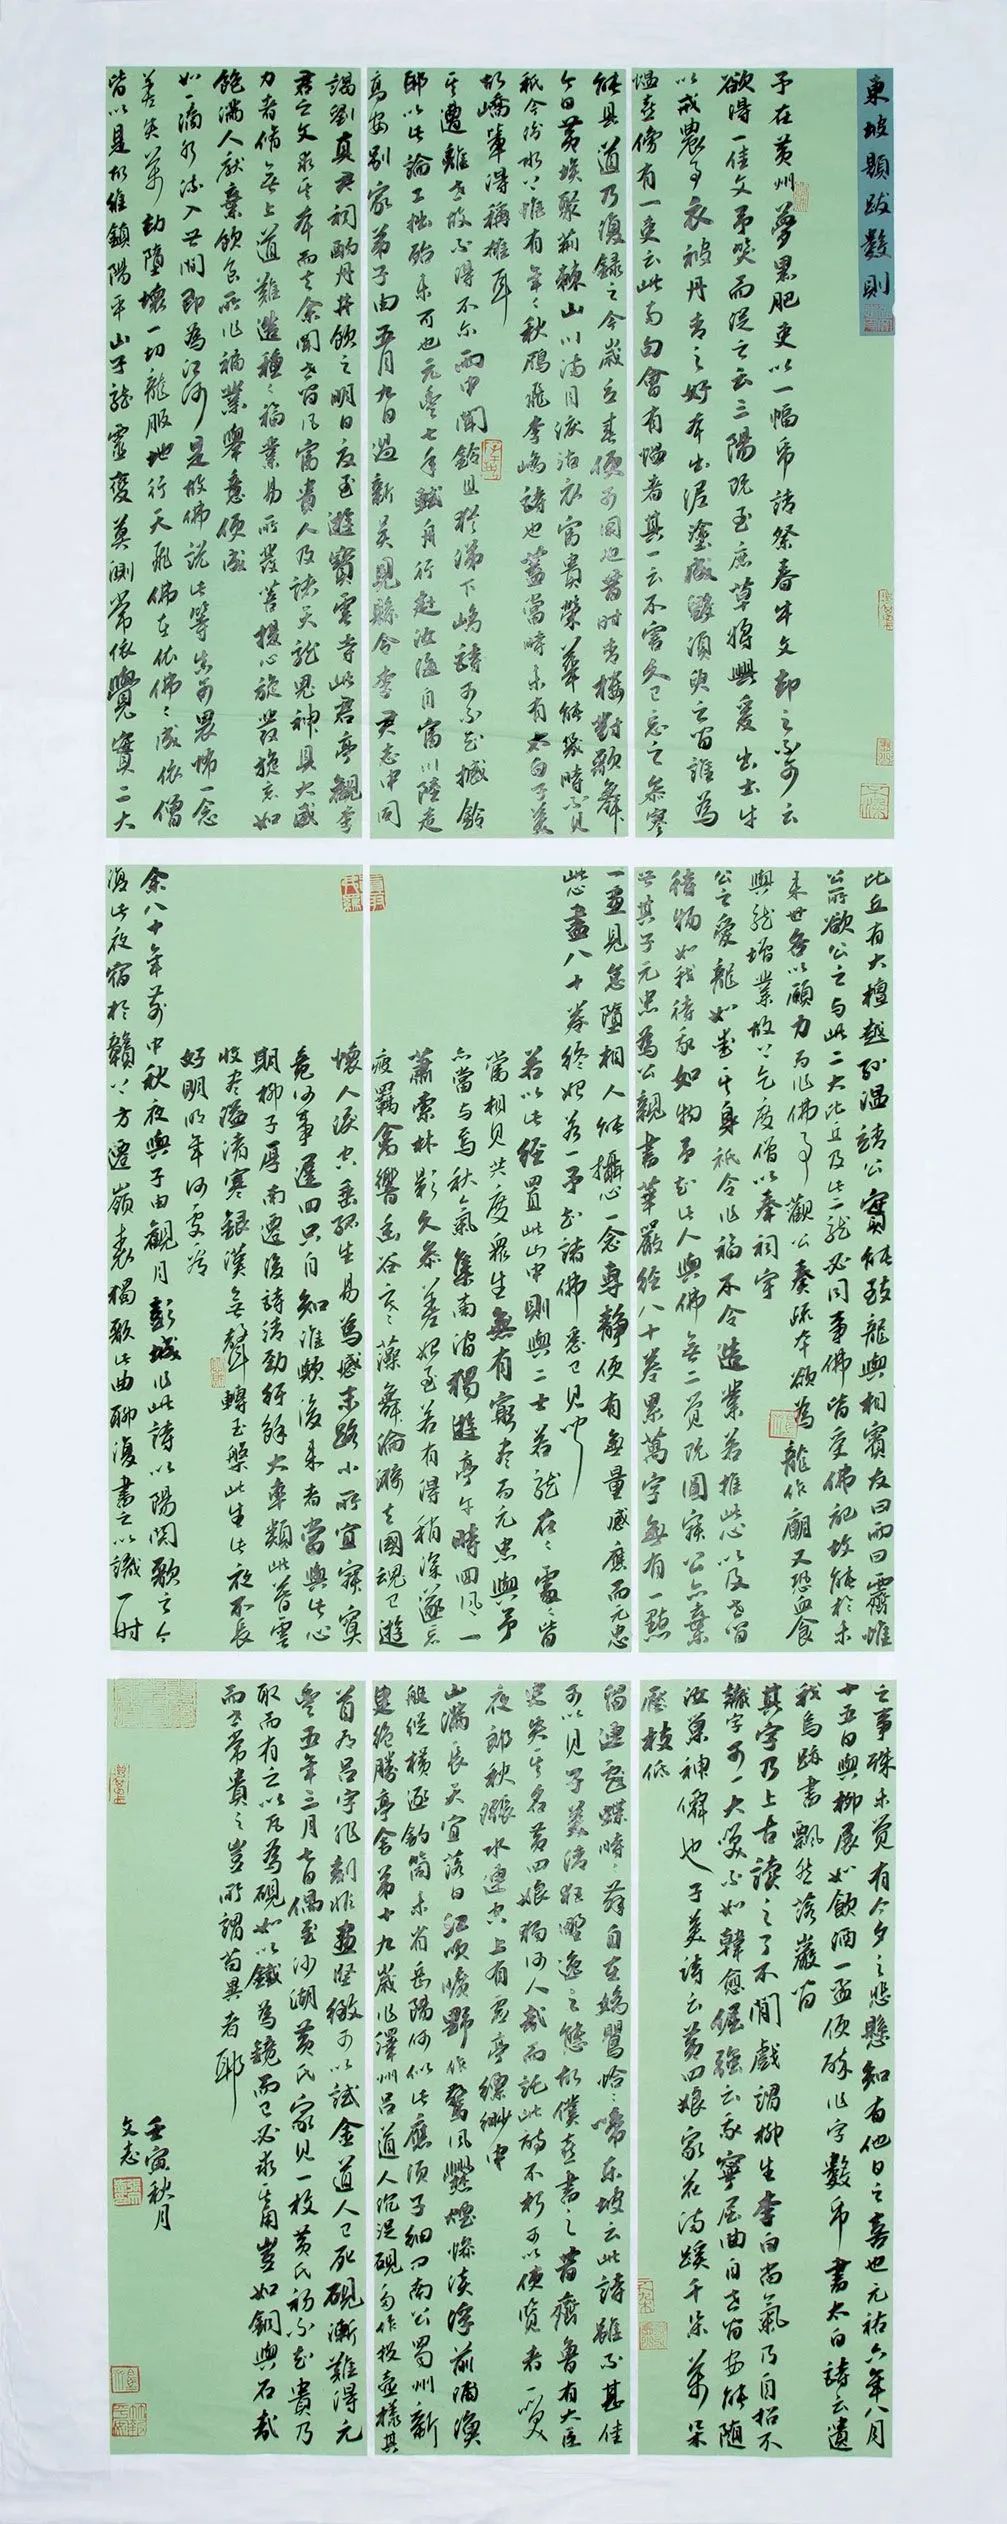 東坡題跋數則
予在黃州夢黑肥吏以一幅帋請祭春牛文却之不可云
欲得一佳文予笑而從之云三陽既至庶草將興爰出土牛
以戒農事衣被丹青之好本出泥塗成毀須臾之間誰為
慍喜傍有一吏云此兩句會有慍者其一云不害久已忘之參寥
能具道乃復錄之今歲立春便可用也昔時青樓對歌舞
今日黃埃聚荊棘山川滿目淚沾衣富貴榮華能幾時不見
祇今汾水上惟有年年秋雁飛李嶠詩也蓋當時未有太白子美
故嶠輩得稱雄耳
其遭離世故不得不爾雨中聞鈴且猶涕下嶠詩可不如撼鈴
耶以此論工拙殆未可也元豐七年軾舟行赴汝海自富川陸走
高安別家弟子由五月九日過新吳見縣令李君志中同
謁劉真君祠酌丹井飲之明日復至遊寶雲寺此君亭觀李
君之文求其本而去余聞世間凡富貴人及諸天龍鬼神具大威
力者脩無上道難造種種福業易所發菩提心旋發旋忘如
飽滿人厭棄飲食所作禍業舉意便成
如一滴水流入世間即為江河是故佛說此等真可畏怖一念
差失萬劫墮壞一切龍服地行天飛佛在依佛佛成依僧
皆以是故維鎮陽平山子龍靈變莫測常依覺實二大
比丘有大檀越孫溫靖公實能致龍與相賓友曰雨曰霽惟
公所欲公之與此二大比丘及此二龍必同事佛皆受佛記故能於未
來世各以願力而作佛事觀公奏疏本欲為龍作廟又恐血食
與龍增業故上乞度僧以奉祠宇
公之愛龍如愛其身祇令作福不令造業若推此心以及世間
待物如我待我如物予知此人與佛無二覺既圓寂公亦棄
世其子元忠為公親書華嚴經八十卷累萬字無有一點
一畫見怠墮相人能攝心一念專靜便有無量感應而元忠
此心盡八十卷終始若一予知諸佛悉已見聞
若以此經置此山中則與二士若龍在在處處皆
當相見共度眾生無有窮盡而元忠與予
亦當與焉秋氣集南澗獨遊亭午時回風一
蕭索林影久參差始至若有得稍深遂忘
疲羈禽響幽谷寒藻舞淪漪去國魂已遊
懷人淚空垂孤生易為感末路小所宜寂寞
竟何事遲回只自知誰歟後來者當與此心
期柳子厚南遷後詩清勁紆餘大率類此暮雲
收盡溢清寒銀漢無聲轉玉盤此生此夜不長
好明明年何處看
余八十年前中秋夜與子由觀月彭城作此詩以陽關歌之今
復此夜宿於贛上方遷嶺表獨歌此曲聊復書之以識一時
之事殊未覺有今夕之悲懸知有他日之喜也元祐六年八月
十五日與柳展如飲酒一盃便醉作字數帋書太白詩云遺
我鳥跡書飄然落巖間
其字乃上古讀之了不閒戲謂柳生李白尚氣乃自招不
識字可一大笑不如韓愈倔強云我寧屈曲自世間安能隨
汝巢神僊也子美詩云黃四娘家花滿蹊千朵萬朵
壓枝低
留連戲蝶時時舞自在嬌鶯恰恰啼東坡云此詩雖不甚佳
可以見子美清狂野逸之態故僕喜書之昔齊魯有大臣
史失其名黃四娘獨何人哉而託此詩不朽可以使覽者一笑
夜郎秋漲水連空上有虛亭縹緲中
山滿長天宜落日江吹曠野作驚風爨煙慘淡浮前浦漁
艇縱橫逐釣筒未省岳陽何似此應須子細問南公蜀州新
建絕勝亭舍弟十九歲作澤州呂道人沉泥硯多作投壺樣其
首有呂字非刻非畫堅緻可以試金道人已死硯漸難得元
豐五年三月七日偶至沙湖黃氏家見一枚黃氏初不知貴乃
取而有之以瓦為硯如以鐵為鏡而已必求其用豈如銅與石哉
而世常貴之豈所謂苟異者耶
壬寅秋月
文志